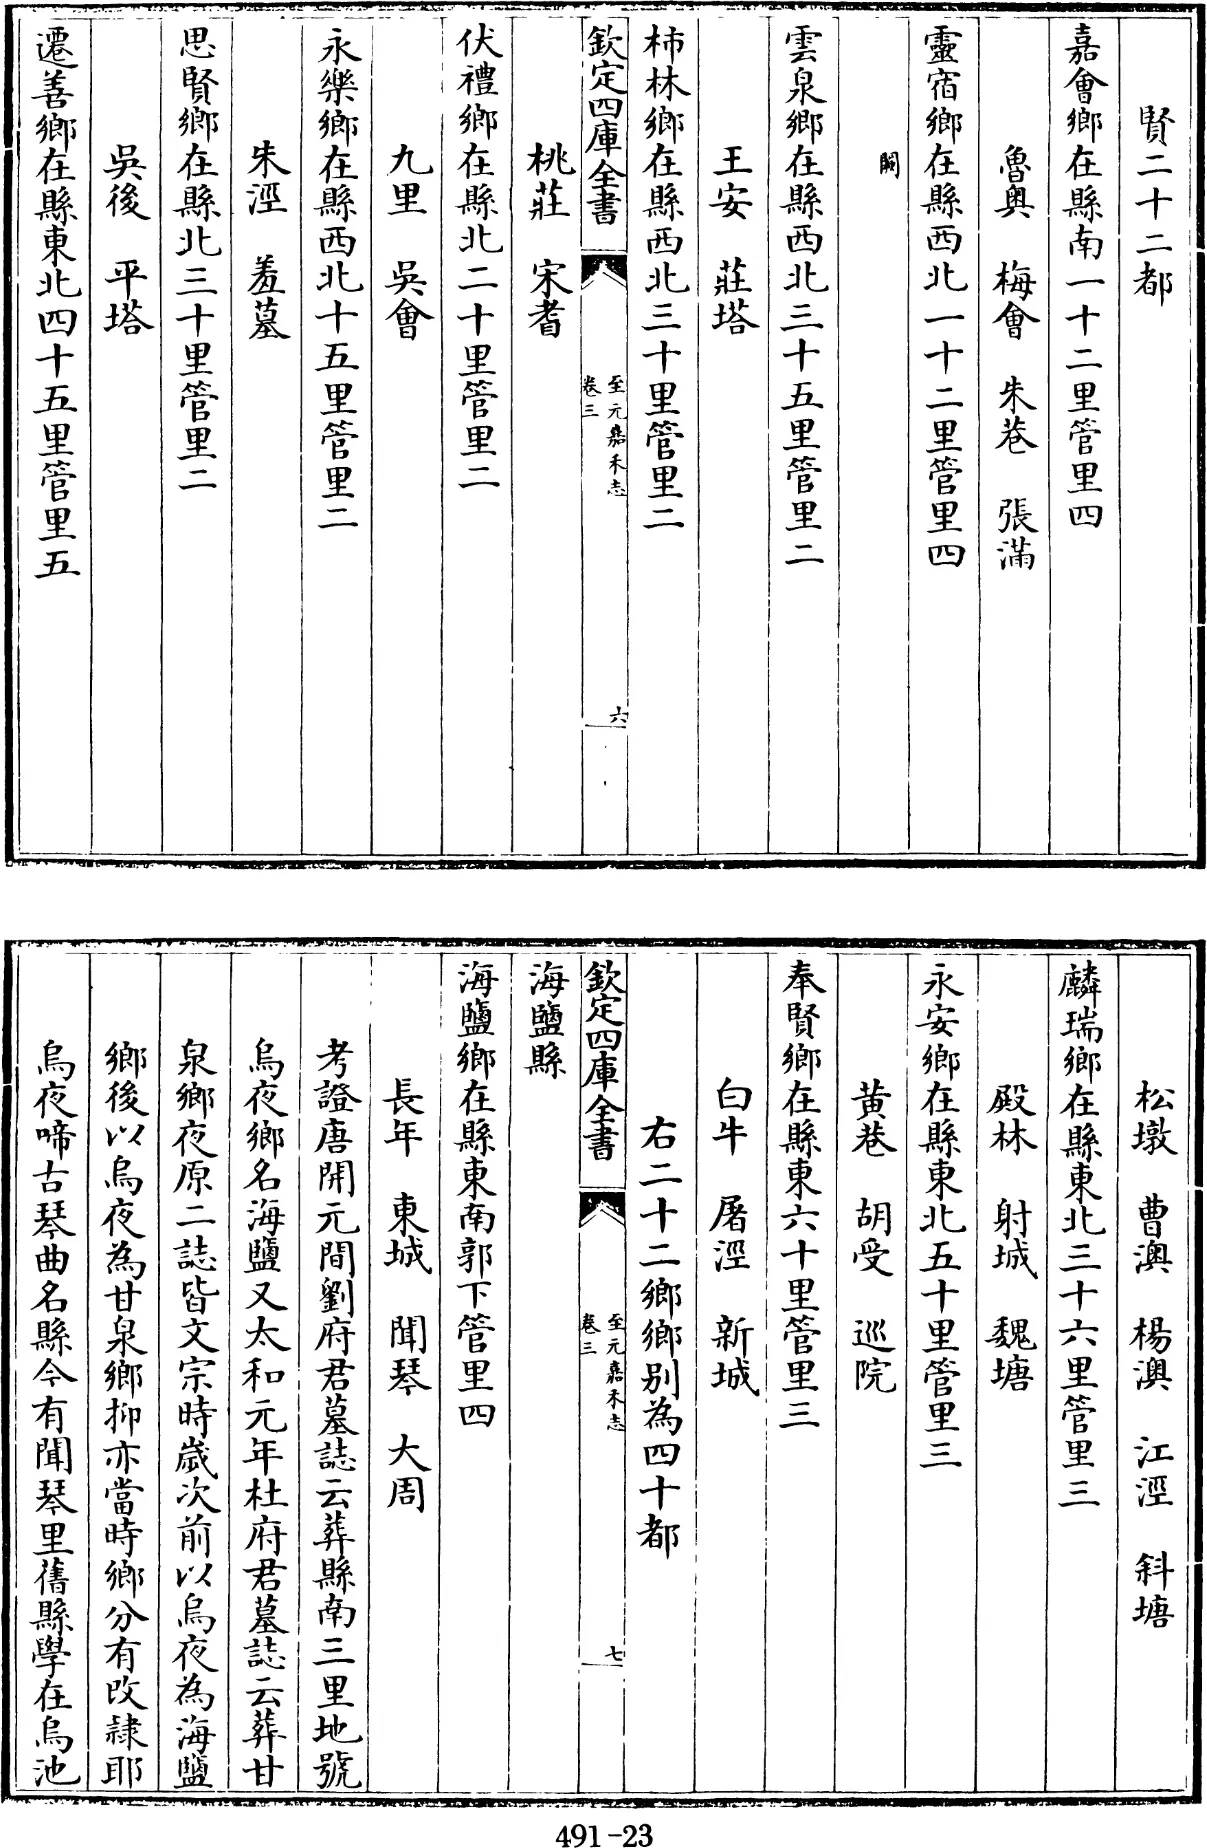 賢二十二都
嘉會鄉在縣南一十二里管里四
魯奥　梅會　朱巷　張滿
靈宿鄉在縣西北一十二里管里四
闕
雲泉鄉在縣西北三十五里管里二
王安　莊塔
柿林鄉在縣西北三十里管里二
欽定四庫全書　至元嘉禾志　卷三　六
桃莊　宋耆
伏禮鄉在縣北二十里管里二
九里　吳會
永樂鄉在縣西北十五里管里二
朱涇　羞墓
思賢鄉在縣北三十里管里二
吳後　平塔
遷善鄉在縣東北四十五里管里五
松墩　曹澳　楊澳　江涇　斜塘
麟瑞鄉在縣東北三十六里管里三
殿林　射城　魏塘
永安鄉在縣東北五十里管里三
黄巷　胡受　巡院
奉賢鄉在縣東六十里管里三
白牛　屠涇　新城
右二十二鄉鄉别為四十都
欽定四庫全書　至元嘉禾志　卷三　七
海鹽縣
海鹽鄉在縣東南郭下管里四
長年　東城　聞琴　大周
考證唐開元間劉府君墓誌云葬縣南三里地號
烏夜鄉名海鹽又太和元年杜府君墓誌云葬甘
泉鄉夜原二誌皆文宗時歲次前以烏夜為海鹽
鄉後以烏夜為甘泉鄉抑亦當時鄉分有改隸耶
烏夜啼古琴曲名縣今有聞琴里舊縣學在烏池
491-23